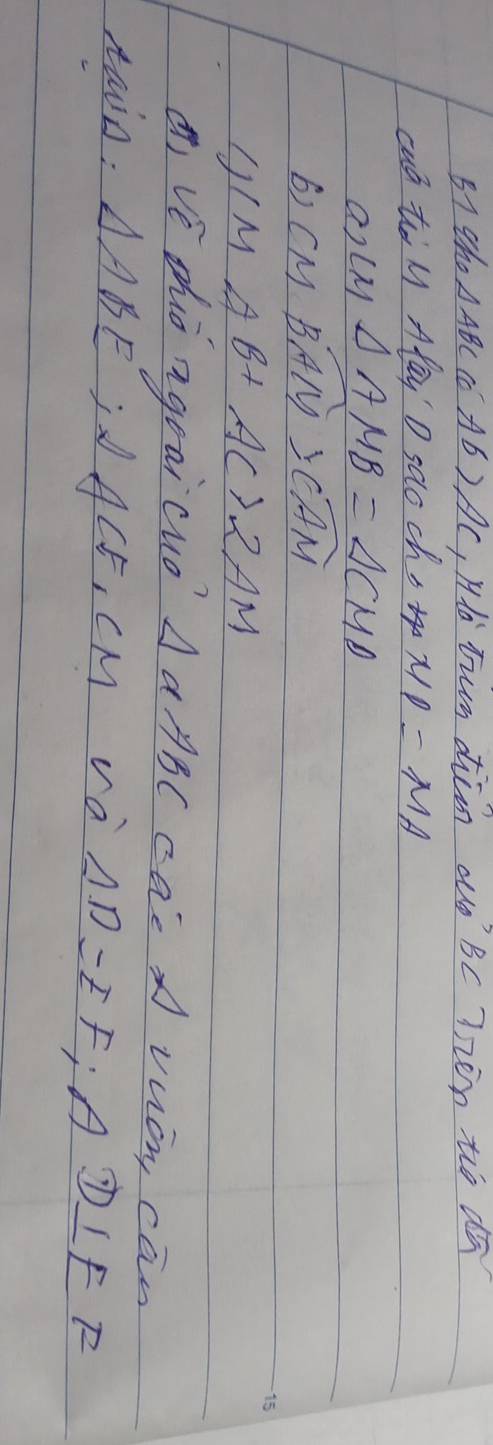 B1 cho Δ ABC có AB > AC, M là trung điểm của BC Trên tia đối
của tia M A lấy D sao cho MD = MA
a, CM Δ AMB = Δ CMD
b, CM BAM > CAM
1, CM AB + AC > 2AM
d, Vẽ phía ngoài của Δ ABC các Δ vuông cân
tại A: Δ ABE; Δ ACF, CM và AD = EF; A D ⊥ E F
15